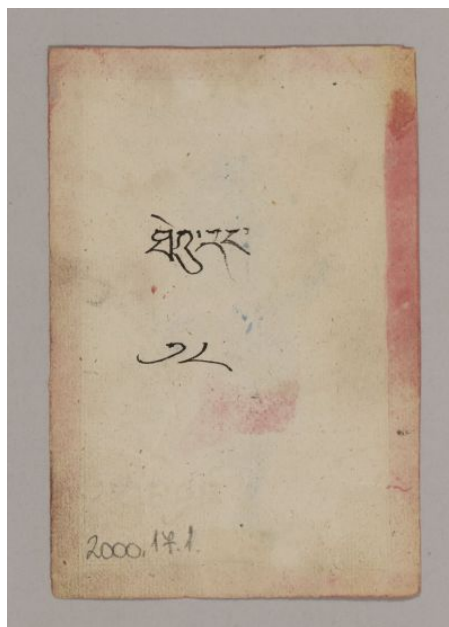 ཐེའུ་རང
༡༨
2000.17.1.